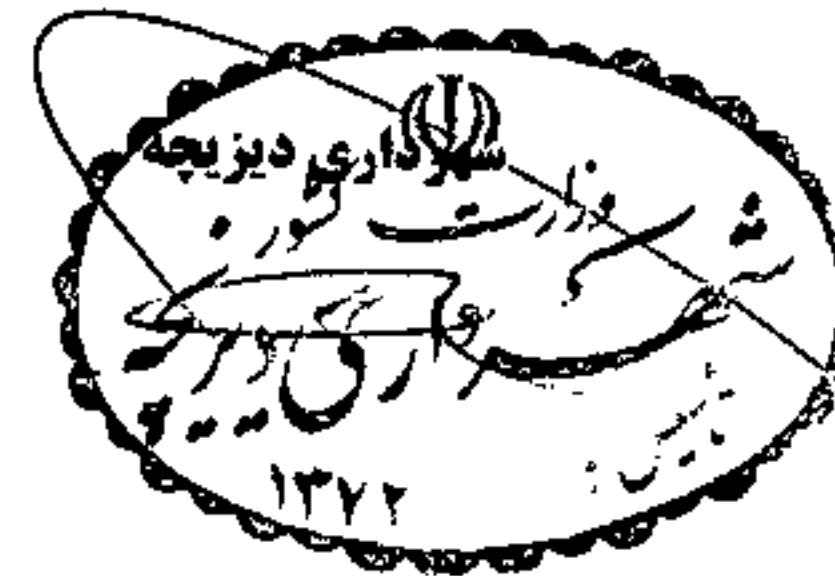 شهرداری دیزیچه
وزارت کشور
شهرداری دیزیچه
تاسیس :
۱۳۷۲